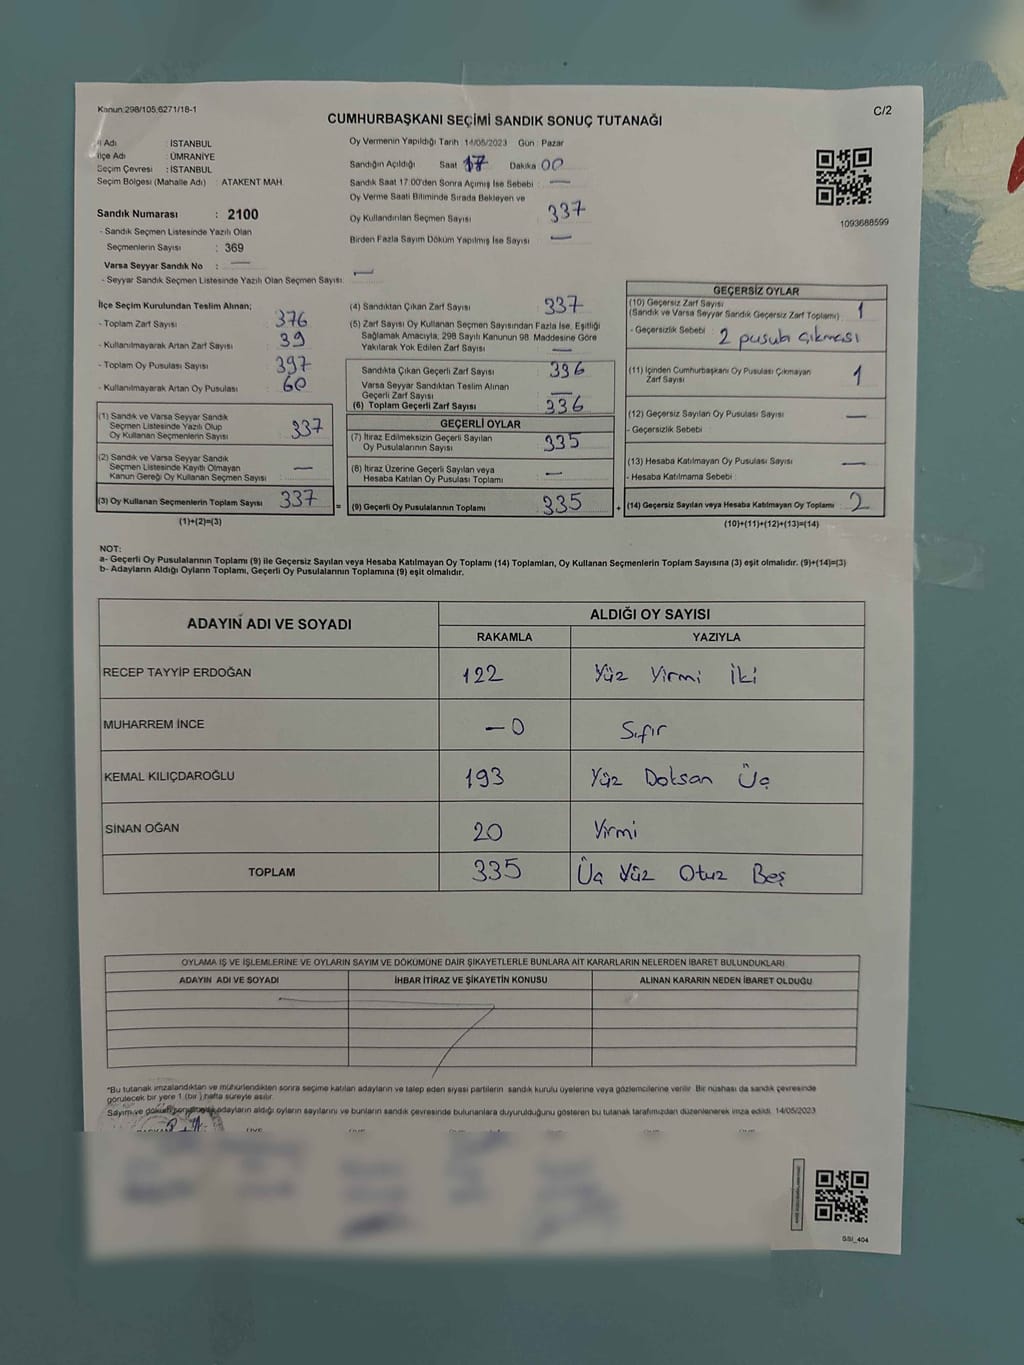 Kanun:298/105,6271/18-1
C/2
CUMHURBAŞKANI SEÇİMİ SANDIK SONUÇ TUTANAĞI
İl Adı : İSTANBUL
İlçe Adı : ÜMRANİYE
Seçim Çevresi : İSTANBUL
Seçim Bölgesi (Mahalle Adı) : ATAKENT MAH.
Sandık Numarası : 2100
- Sandık Seçmen Listesinde Yazılı Olan
Seçmenlerin Sayısı : 369
Varsa Seyyar Sandık No : —
- Seyyar Sandık Seçmen Listesinde Yazılı Olan Seçmen Sayısı: —
Oy Vermenin Yapıldığı Tarih : 14/05/2023 Gün : Pazar
Sandığın Açıldığı Saat 17 Dakika 00
Sandık Saat 17.00'den Sonra Açımış İse Sebebi : —
Oy Verme Saati Bitiminde Sırada Bekleyen ve
Oy Kullandırılan Seçmen Sayısı 337
Birden Fazla Sayım Döküm Yapılmış İse Sayısı —
1093688599
İlçe Seçim Kurulundan Teslim Alınan;
- Toplam Zarf Sayısı 376
- Kullanılmayarak Artan Zarf Sayısı 39
- Toplam Oy Pusulası Sayısı 397
- Kullanılmayarak Artan Oy Pusulası 60
(1) Sandık ve Varsa Seyyar Sandık
Seçmen Listesinde Yazılı Olup
Oy Kullanan Seçmenlerin Sayısı 337
(2) Sandık ve Varsa Seyyar Sandık
Seçmen Listesinde Kayıtlı Olmayan
Kanun Gereği Oy Kullanan Seçmen Sayısı —
(3) Oy Kullanan Seçmenlerin Toplam Sayısı 337 =
(1)+(2)=(3)
(4) Sandıktan Çıkan Zarf Sayısı 337
(5) Zarf Sayısı Oy Kullanan Seçmen Sayısından Fazla İse, Eşitliği
Sağlamak Amacıyla, 298 Sayılı Kanunun 98. Maddesine Göre
Yakılarak Yok Edilen Zarf Sayısı —
Sandıkta Çıkan Geçerli Zarf Sayısı 336
Varsa Seyyar Sandıktan Teslim Alınan
Geçerli Zarf Sayısı —
(6) Toplam Geçerli Zarf Sayısı 336
GEÇERLİ OYLAR
(7) İtiraz Edilmeksizin Geçerli Sayılan
Oy Pusulalarının Sayısı 335
(8) İtiraz Üzerine Geçerli Sayılan veya
Hesaba Katılan Oy Pusulası Toplamı —
(9) Geçerli Oy Pusulalarının Toplamı 335 +
GEÇERSİZ OYLAR
(10) Geçersiz Zarf Sayısı
(Sandık ve Varsa Seyyar Sandık Geçersiz Zarf Toplamı) 1
- Geçersizlik Sebebi : 2 pusula çıkması
(11) İçinden Cumhurbaşkanı Oy Pusulası Çıkmayan
Zarf Sayısı 1
(12) Geçersiz Sayılan Oy Pusulası Sayısı —
- Geçersizlik Sebebi :
(13) Hesaba Katılmayan Oy Pusulası Sayısı —
- Hesaba Katılmama Sebebi :
(14) Geçersiz Sayılan veya Hesaba Katılmayan Oy Toplamı 2
(10)+(11)+(12)+(13)=(14)
NOT:
a- Geçerli Oy Pusulalarının Toplamı (9) ile Geçersiz Sayılan veya Hesaba Katılmayan Oy Toplamı (14) Toplamları, Oy Kullanan Seçmenlerin Toplam Sayısına (3) eşit olmalıdır. (9)+(14)=(3)
b- Adayların Aldığı Oyların Toplamı, Geçerli Oy Pusulalarının Toplamına (9) eşit olmalıdır.
ADAYIN ADI VE SOYADI ALDIĞI OY SAYISI
RAKAMLA YAZIYLA
RECEP TAYYİP ERDOĞAN 122 Yüz Yirmi İki
MUHARREM İNCE — 0 Sıfır
KEMAL KILIÇDAROĞLU 193 Yüz Doksan Üç
SİNAN OĞAN 20 Yirmi
TOPLAM 335 Üç Yüz Otuz Beş
OYLAMA İŞ VE İŞLEMLERİNE VE OYLARIN SAYIM VE DÖKÜMÜNE DAİR ŞİKAYETLERLE BUNLARA AİT KARARLARIN NELERDEN İBARET BULUNDUKLARI
ADAYIN ADI VE SOYADI İHBAR İTİRAZ VE ŞİKAYETİN KONUSU ALINAN KARARIN NEDEN İBARET OLDUĞU
*Bu tutanak imzalandıktan ve mühürlendikten sonra seçime katılan adayların ve talep eden siyasi partilerin sandık kurulu üyelerine veya gözlemcilerine verilir. Bir nüshası da sandık çevresinde
görülecek bir yere 1 (bir) hafta süreyle asılır.
Sayım ve döküm sonucuyla adayların aldığı oyların sayılarını ve bunların sandık çevresinde bulunanlara duyurulduğunu gösteren bu tutanak tarafımızdan düzenlenerek imza edildi. 14/05/2023
SSI_404